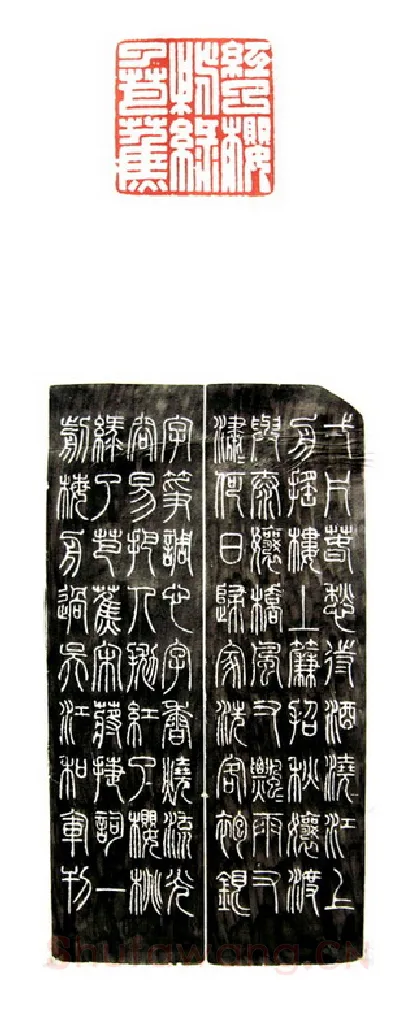 紅了櫻
桃綠
了芭蕉
弌片春愁待酒澆江上
舟搖樓上簾招秋孃渡
與泰孃橋風又飄〻雨又
瀟〻何日歸家洗客袍銀
字笙調心字香燒流光
容易把人拋紅了櫻桃
綠了芭蕉宋蔣捷詞一
剪梅舟過吳江和軍刊
Shufawang.CN